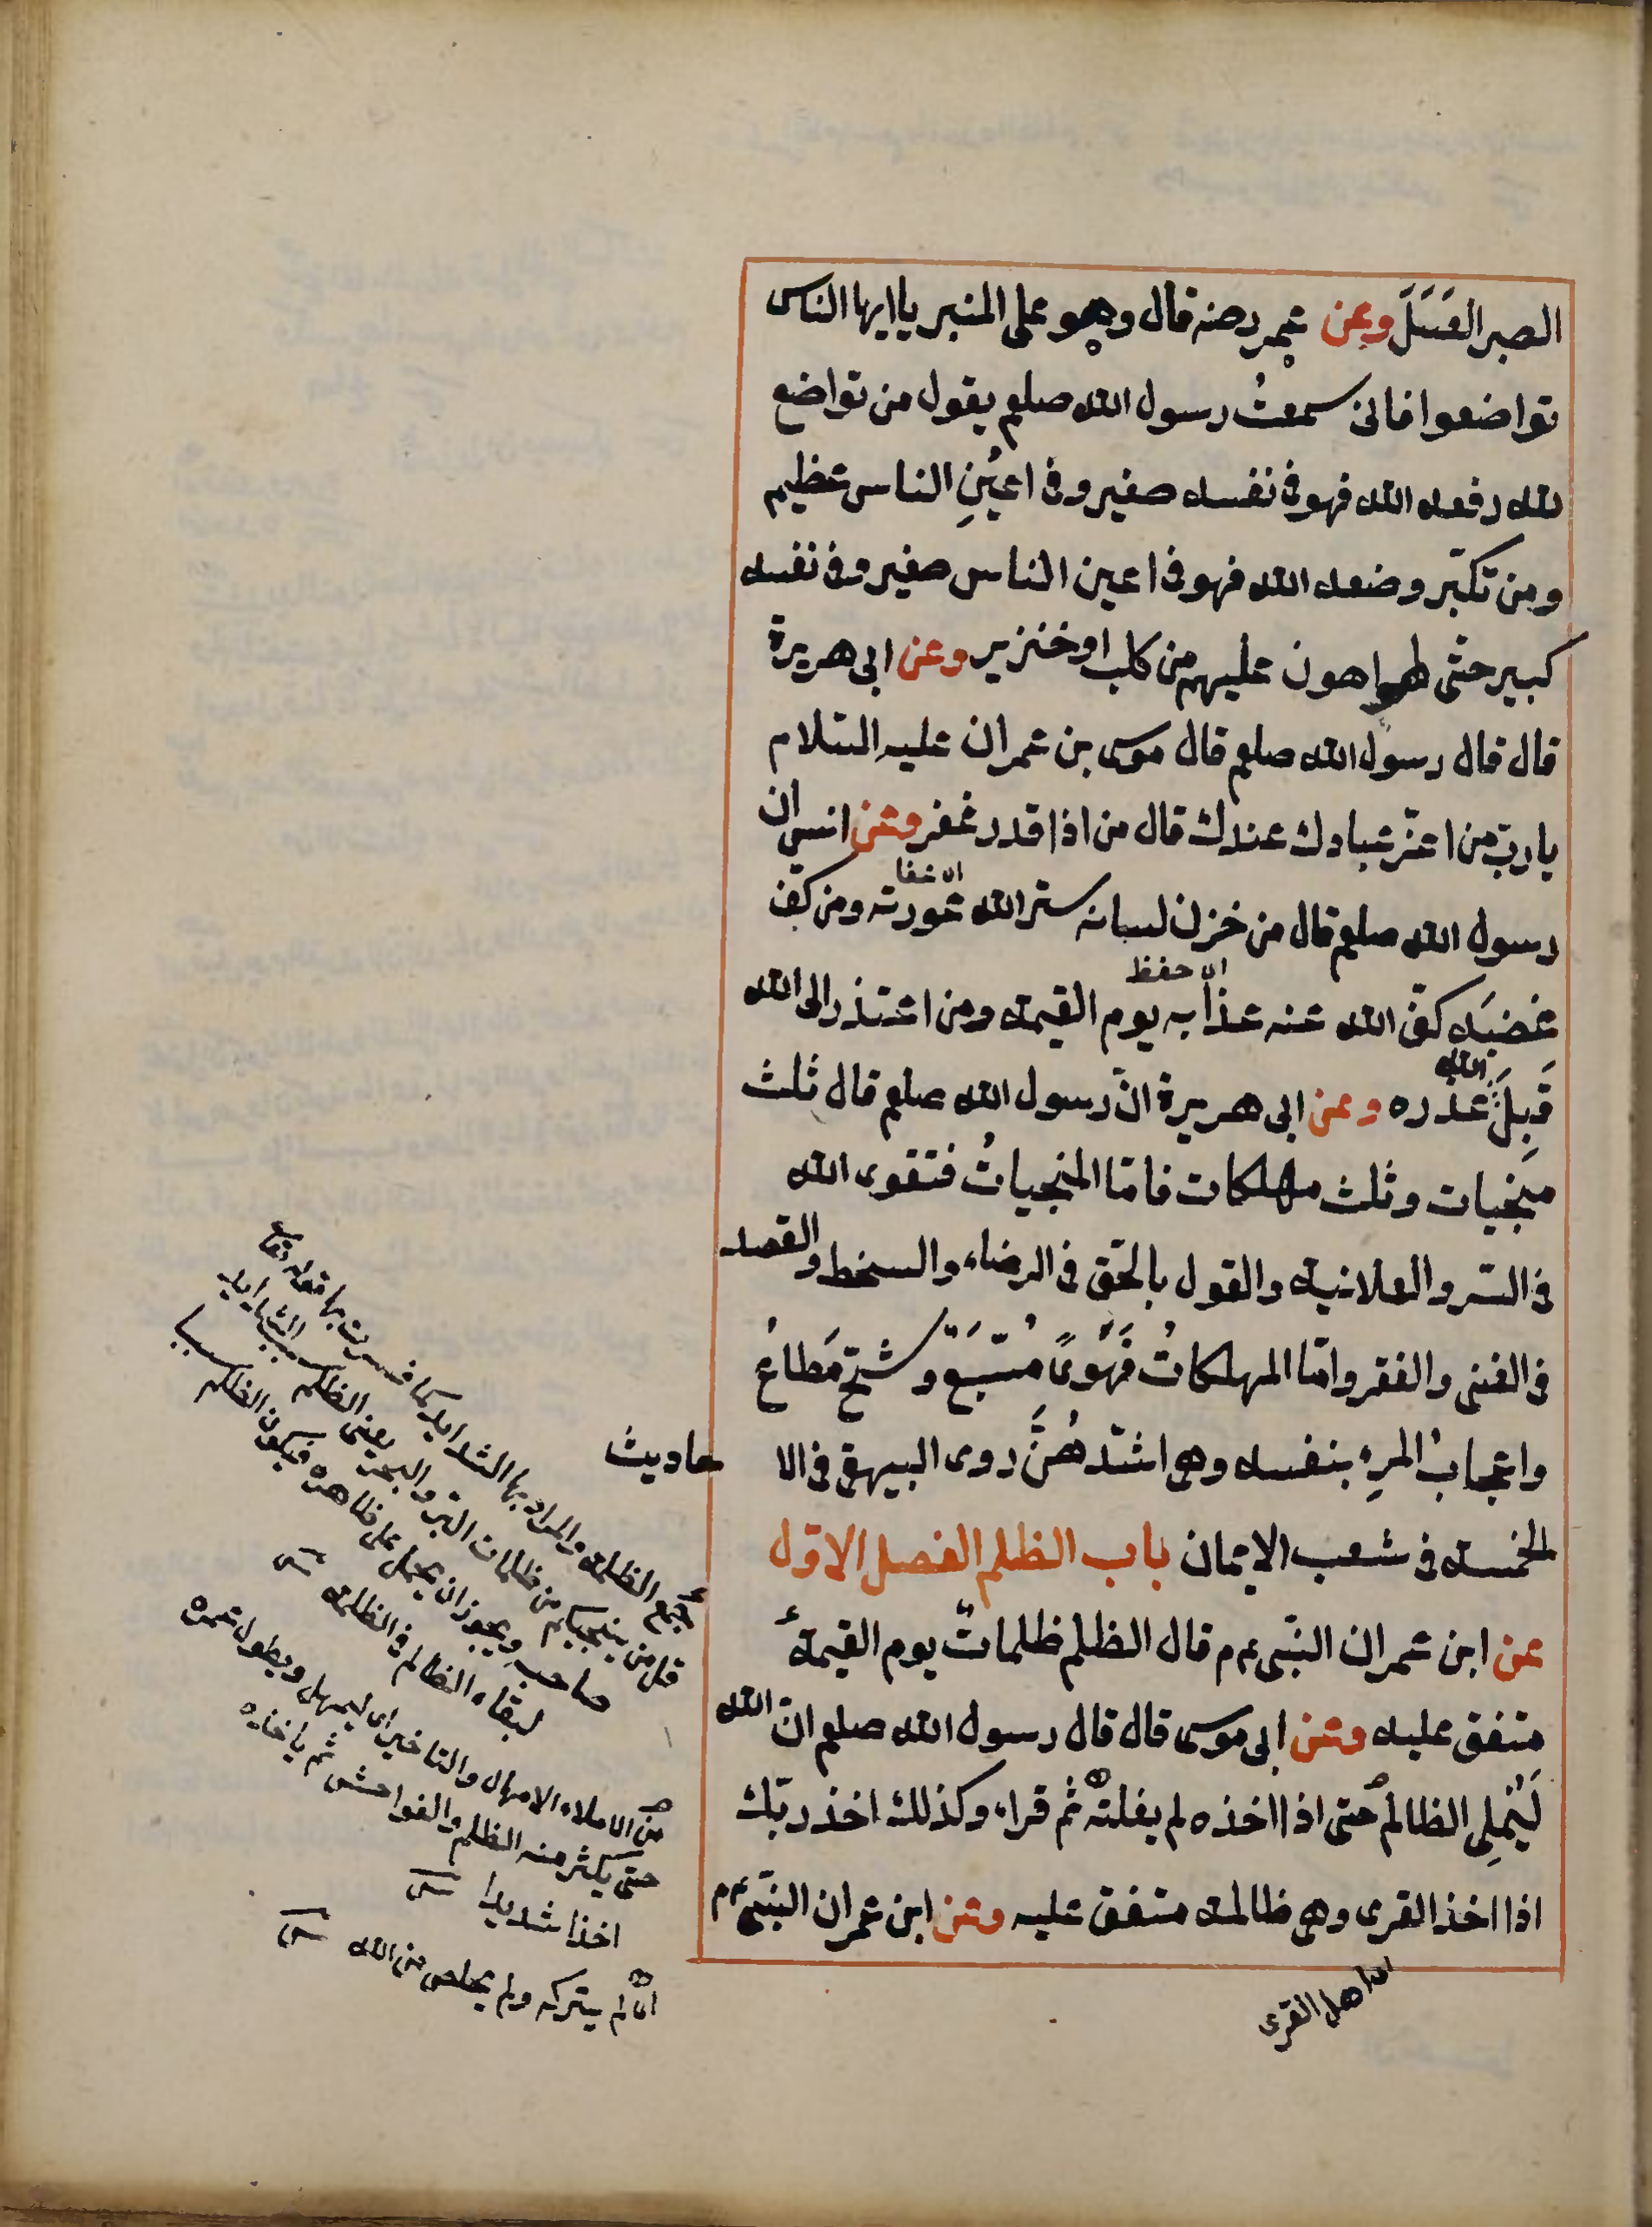 الصبر العَسَلَ وعن عمر رضه قال وهو على المنبر يا ايها الناس
تواضعوا فانى سمعتُ رسول الله صلعم يقول من تواضع
لله رفعه الله فهو فى نفسه صغير وفى اعيُنِ الناس عظيم
ومن تكبّر وضعه الله فهو فى اعين الناس صغير وفى نفسه
كبير حتّى لهو اهون عليهم من كلب او خنزير وعن ابى هريرة
قال قال رسول الله صلعم قال موسى بن عمران عليه السّلام
يا ربّ من اعزّ عبادك عندك قال من اذا قدر غفر وعن انس ان
رسول الله صلعم قال من خزن لسانه ستر الله عورته ومن كفّ
اى حفظ
غضبَه كفّ الله عنه عذابه يوم القيمة ومن اعتذر الى الله
قَبِلَ الله عذره وعن ابى هريرة انّ رسول الله صلعم قال ثلث
منجيات وثلث مهلكات فامّا المنجياتُ فتقوى الله
فى السّر والعلانية والقول بالحّق فى الرضاء والسخط والقصد
فى الغنى والفقر وامّا المهلكاتُ فَهَوىً مُتّبَعٌ وشحّ مُطاعُ
واعجابُ المرِء بنفسه وهى اشدّ هُنَّ روى البيهقى فى الا
حاديث
الخمسة فى شعب الايمان باب الظلم الفصل الاوّل
عن ابن عمر ان النبّى عم قال الظلم ظلماتٌ يوم القيمة
متفق عليه وعن ابى موسى قال قال رسول الله صلعم انّ الله
لَيُملِى الظالمَ حتى اذا اخذه لم يفلته ثم قراء وكذلك اخذ ربّك
اذا اخذ القرى وهى ظالمة متفق عليه وعن ابن عمر ان النبّى عم
اى اهل القرى
جمع الظلمة والمراد بها الشدايد كما فسرت بها قوله تعا
قل من ينجيكم من ظلمات البّر والبحر يعنى الظلم سبب الشدايد
صاحبه ويجوز ان يحمل على ظاهره فيكون الظلم سببا
لبقاء الظالم فى الظلمة
من الاملاء الامهال والتاخير اى ليمهل ويطول عمره
حتى يكثر منه الظلم والفواحش ثم ياخذه
اخذا شديدا
اى لم يتركه ولم يخلص من الله